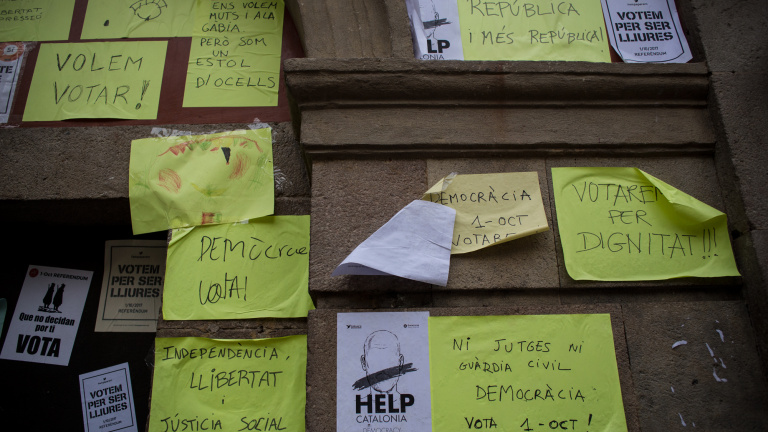 LIBERTAT
ENS VOLEN
MUTS I A LA
GÀBIA
PERÒ SOM
UN
ESTOL
D'OCELLS
VOLEM
VOTAR!
LP
CATALONIA
REPÚBLICA
I MÉS REPÚBLICA!
VOTEM
PER SER
LLIURES
1/10/2017
REFERÈNDUM
DEMÒCRAC
VOTA!
DEMOCRÀCIA
1-OCT
VOTARE
VOTAREM
PER
DIGNITAT!!!
1 Oct REFERENDUM
Que no
decidan
por ti
VOTA
VOTEM
PER SER
LLIURES
1/10/2017
REFERÈNDUM
VOTEM
PER SER
LLIURES
INDEPENDÈNCIA,
LLIBERTAT
i
JÚSTICIA SOCIAL
HELP
CATALONIA
DEMOCRACY
NI JUTGES NI
GUÀRDIA CIVIL
DEMOCRÀCIA
VOTA 1-OCT!